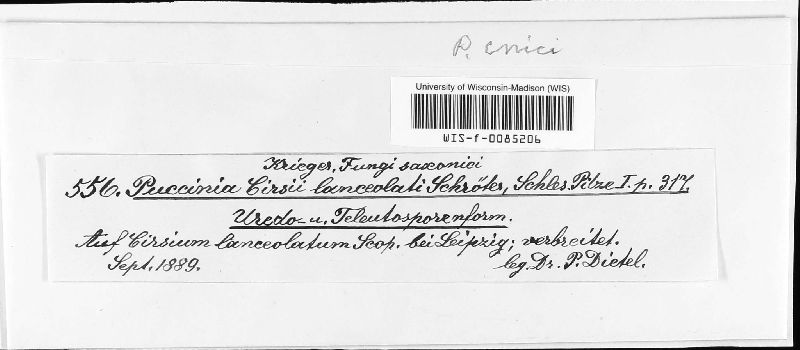 P. cnici
University of Wisconsin-Madison (WIS)
WIS-f-0085206
Krieger, Fungi saxonici
556. Puccinia Cirsii lanceolati Schröter, Schles. Pilze I. p. 317.
Uredo- u. Teleutosporenform.
Auf Cirsium lanceolatum Scop. bei Leipzig; verbreitet.
Sept. 1889. leg. Dr. P. Dietel.